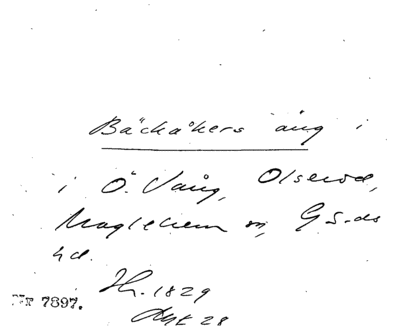 Bäckåkers äng i
i Ö. Vång, Olseröd,
Maglehem sn, Gs.ds
hd.
Hr. 1829
Akt 28
Nr 7897.